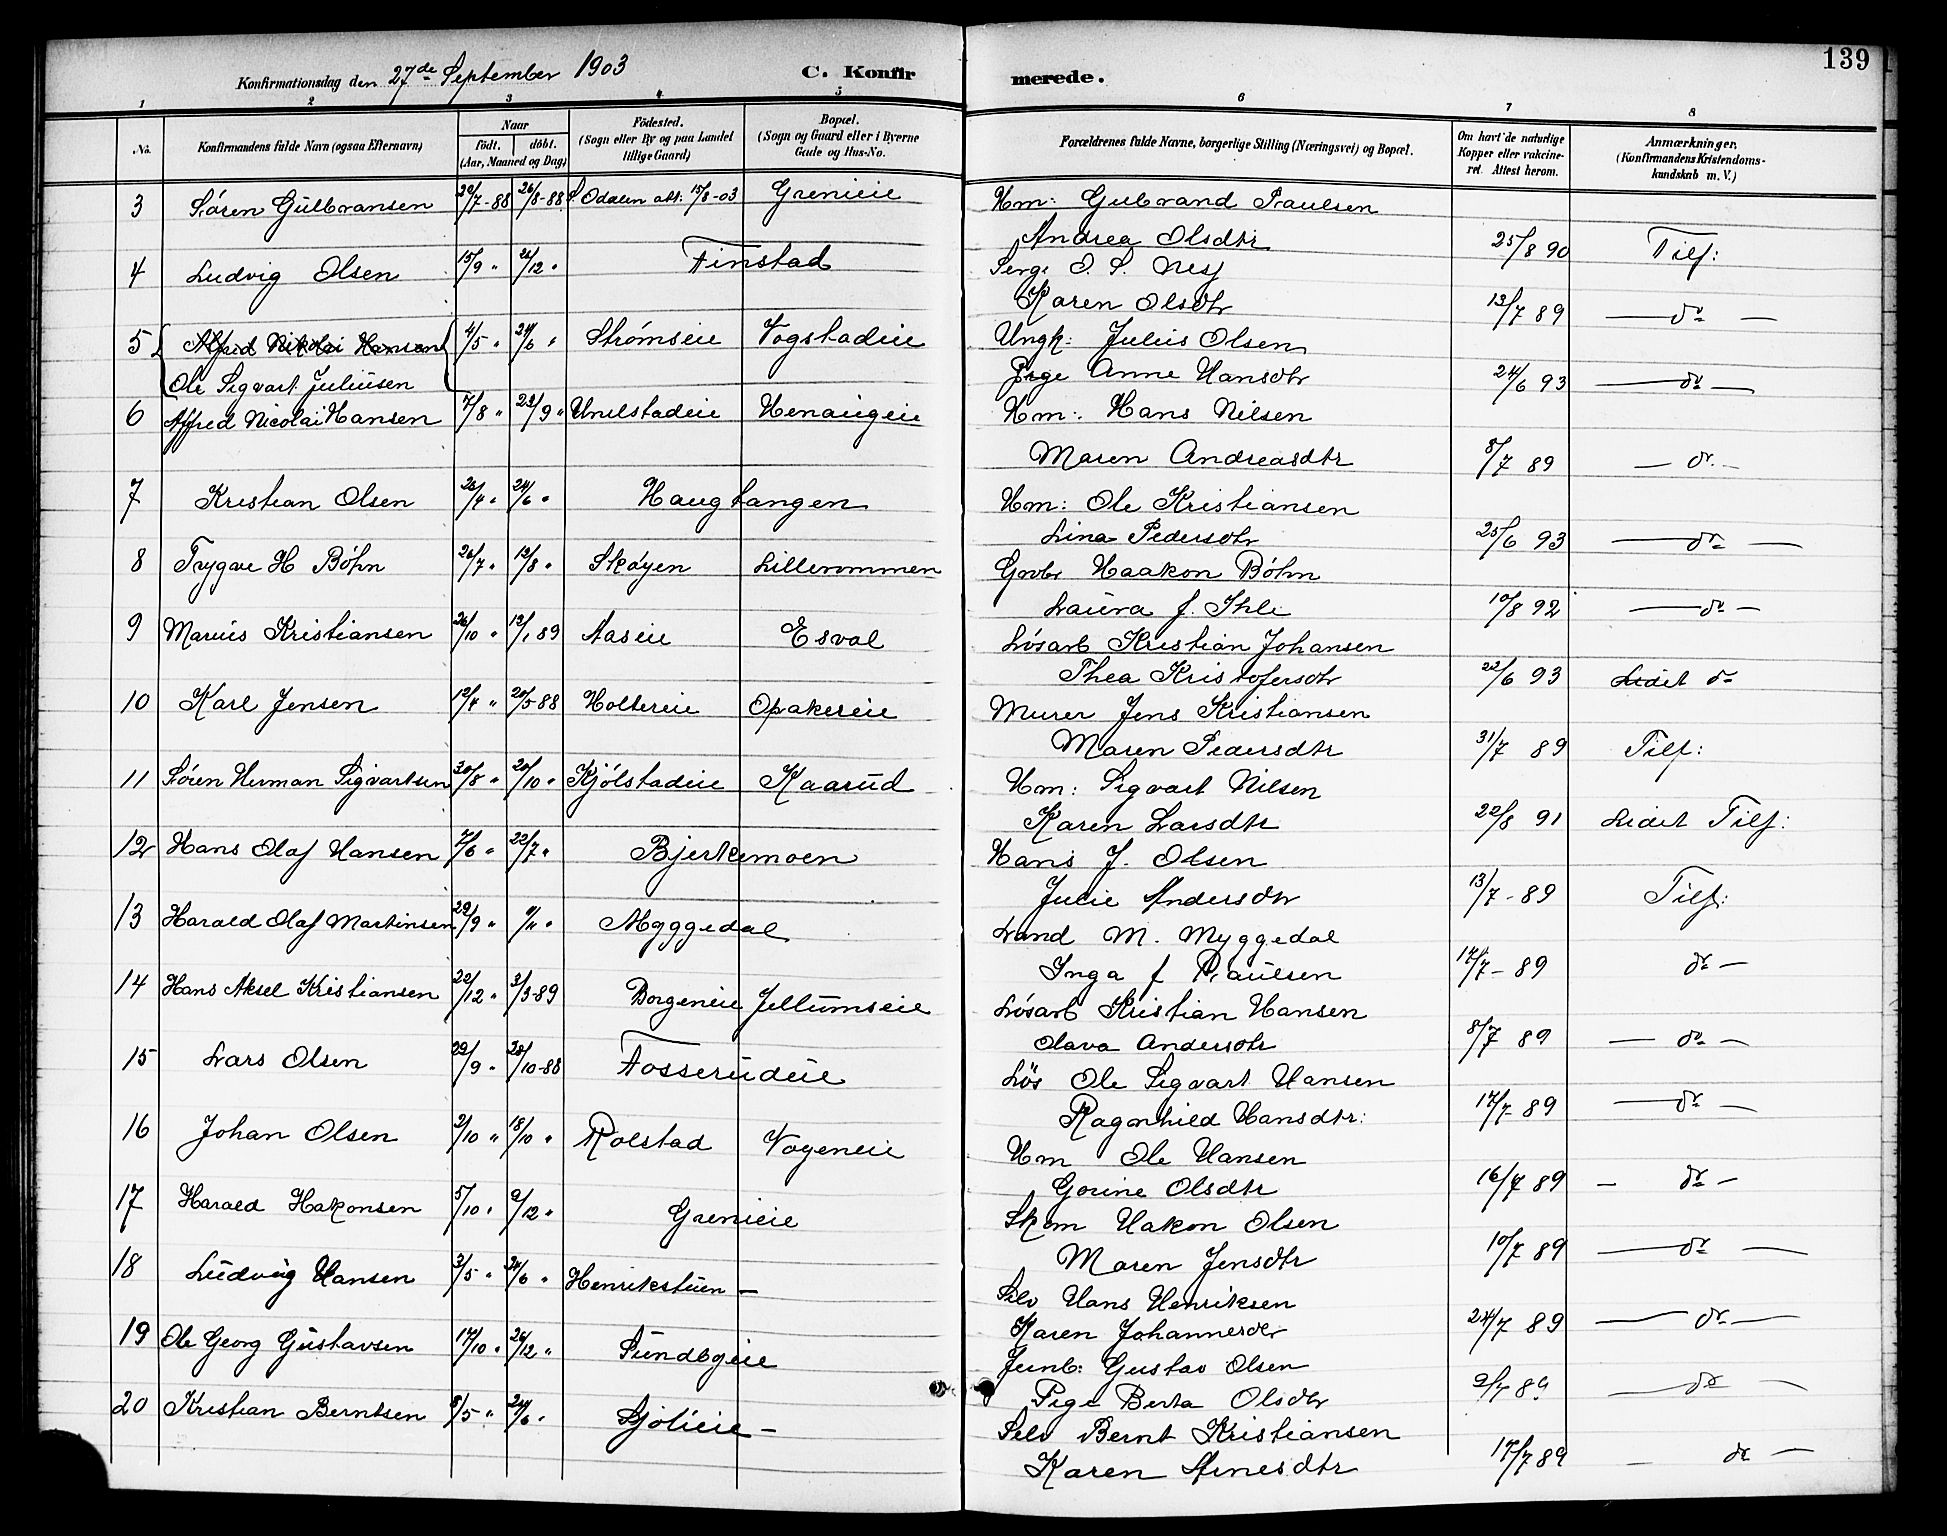 139
Konfirmationsdag den 27de September 1903 C. Konfirmerede.
1 2 3 4 5 6 7 8
No. Konfirmandens fulde Navn (ogsaa Efternavn) Naar født. døbt. (Aar, Maaned og Dag) Fødested. (Sogn eller By og paa Landet tillige Gaard) Bopæl. (Sogn og Gaard eller i Byerne Gade og Hus-No. Forældrenes fulde Navne, borgerlige Stilling (Næringsvei) og Bopæl. Om havt de naturlige Kopper eller vakcineret. Attest herom. Anmærkninger. (Konfirmandens Kristendomskundskab m. V.)
3 Søren Gulbransen 29/7-88 26/8-88 S. Odalen att. 15/8-03 Grenieie Hm: Gulbrand Paulsen
Andrea Olsdtr 25/8 90 Tilf:
4 Ludvig Olsen 15/9 " 26/12 " Finstad Serg. O. S. Nesj
Karen Olsdtr 13/7 89 — do —
5 Alfred Nikolai Hansen 4/5 " 24/6 " Strømseie Vogstadeie Ungk: Julius Olsen
Ole Sigvart Juliusen Pige Anne Hansdtr 24/6 93 — do —
6 Alfred Nicolai Hansen 7/8 " 23/9 " Unelstadeie Henaugeie Hm: Hans Nilsen
Maren Andreasdtr 8/7 89 — do —
7 Kristian Olsen 23/4 " 24/6 " Haugtangen Hm: Ole Kristiansen
Lina Pedersdtr 25/6 93 — do —
8 Trygve H Bøhn 26/7 " 12/8 " Skøyen Lillerommen Grdbr Haakon Bøhn
Laura f. Ihle 10/8 92 — do —
9 Marius Kristiansen 26/10 " 13/1 89 Aaseie Esval Løsarb Kristian Johansen
Thea Kristofersdtr 22/6 93 Lidet do
10 Karl Jensen 12/4 " 20/5-88 Holtereie Opakereie Murer Jens Kristiansen
Maren Pedersdtr 31/7 89 Tilf:
11 Søren Herman Sigvartsen 30/8 " 20/10 " Kjølstadeie Kaarud Hm: Sigvart Nilsen
Karen Larsdtr 22/8 91 Lidet Tilf:
12 Hans Olaf Hansen 7/6 " 22/7 " Bjerkemoen Hans J. Olsen
Julie Andersdtr 13/7-89 Tilf:
13 Harald Olaf Martinsen 29/9 " /11 " Myggedal Land M. Myggedal
Inga f Paulsen 17/7-89 do —
14 Hans Aksel Kristiansen 22/12 " 3/3-89 Borgeneie Jellumseie Løsarb Kristian Hansen
Olava Andersdtr 8/7 89 — do —
15 Lars Olsen 29/9 " 28/10-88 Fosserudeie Løs Ole Sigvart Hansen
Ragnhild Hansdtr: 17/7-89 — do —
16 Johan Olsen 2/10 " 18/10 " Rolstad Vogeneie Hm Ole Hansen
Gorine Olsdtr 16/7 89 — do —
17 Harald Hakonsen 5/10 " 9/12 " Grenieie Skom Hakon Olsen
Maren Jensdtr 10/7 89 — do —
18 Ludvig Hansen 3/5 " 24/6 " Henrikstuen — Selv Hans Henriksen
Karen Johannesdtr 24/7 89 — do —
19 Ole Georg Gustavsen 17/10 " 26/12 " Sundbyeie Jernb: Gustav Olsen
Pige Berta Olsdtr 9/7 89 — do —
20 Kristian Berntsen 8/5 " 24/6 " Sjølieie — Selv Bernt Kristiansen
Karen Arnesdtr 17/7 89 — do —